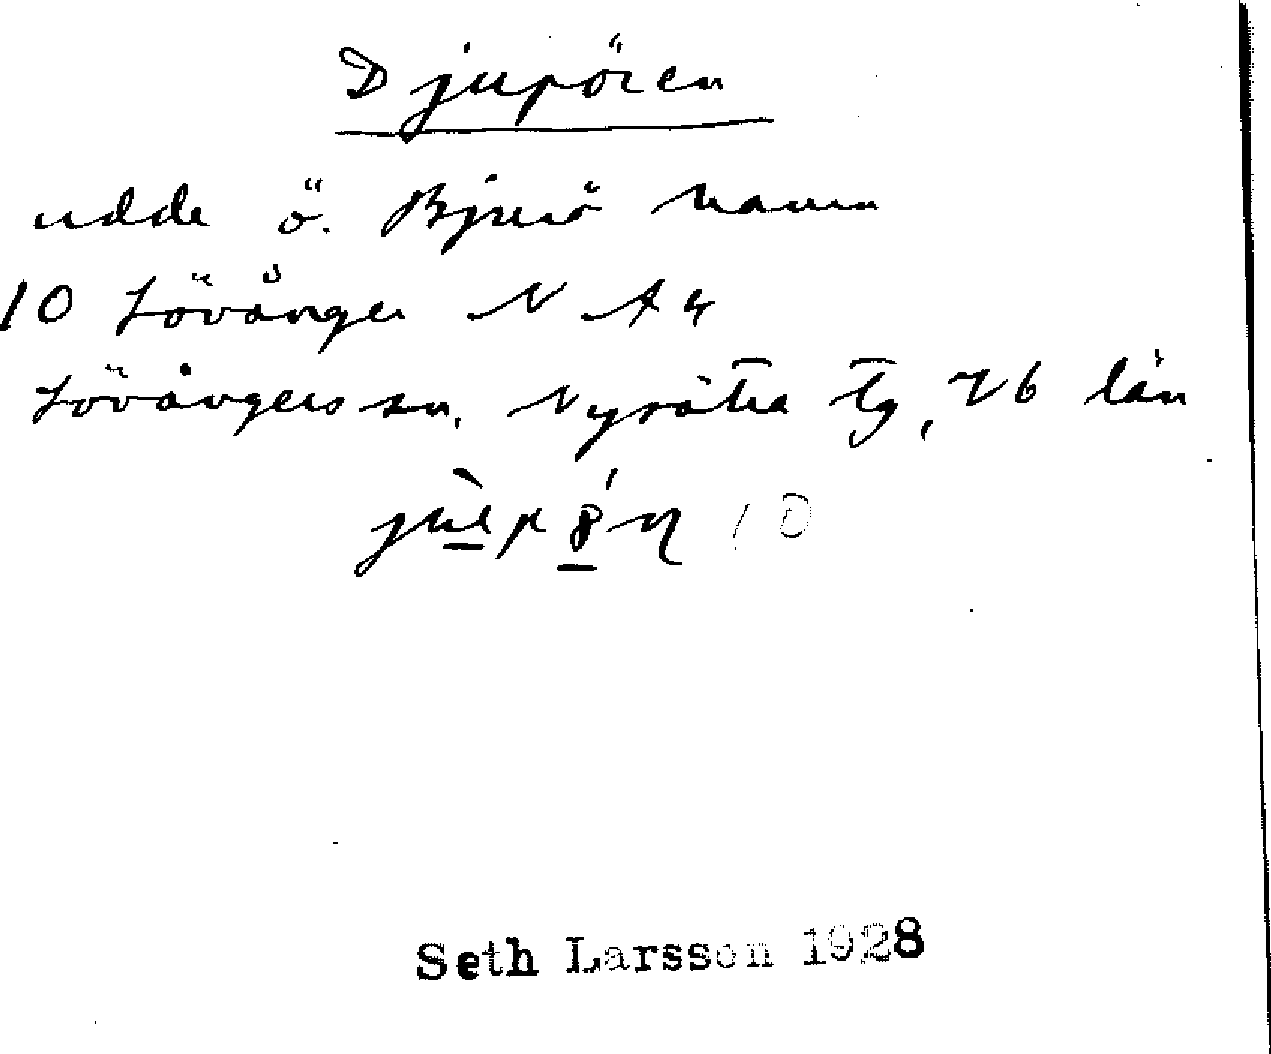 Djupören
udde ö. Bjurö hamn
10 Lövånger N A 4
Lövångers sn, Nysätra tg, Vb län
10
Seth Larsson 1928